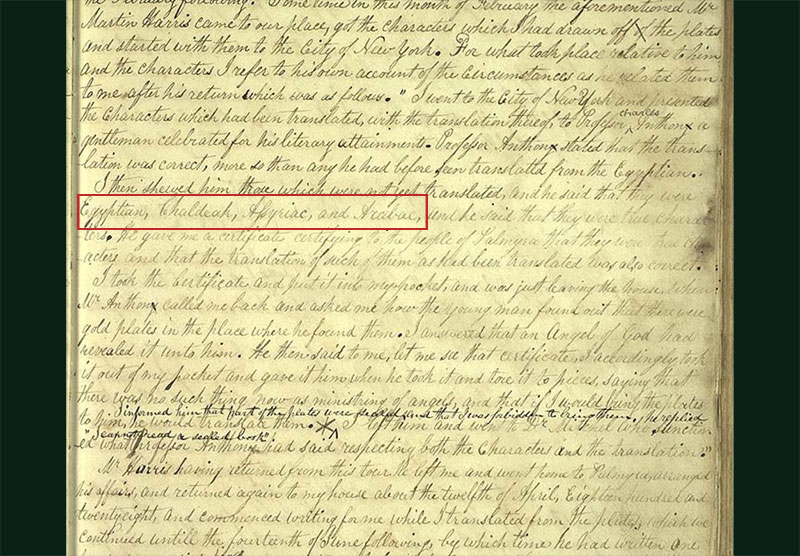 the February following. Some time in this month of February the aforementioned Mr
Martin Harris came to our place, got the characters which I had drawn off the plates
and started with them to the City of New York. For what took place relative to him
and the characters I refer to his own account of the circumstances as he related them
to me after his return which was as follows. "I went to the City of New York and presented
the Characters which had been translated, with the translation thereof, to Professor charles Anthony a
gentleman celebrated for his literary attainments. Professor Anthony stated that the trans-
lation was correct, more so than any he had before seen translated from the Egyptian.
I then shewed him those which were not yet translated, and he said that they were
Egyptian, Chaldeak, Assyriac, and Arabac, and he said that they were true charac-
ters. He gave me a certificate certifying to the people of Palmyra that they were true char-
acters and that the translation of such of them as had been translated was also correct.
I took the Certificate and put it into my pocket, and was just leaving the house, when
Mr Anthony called me back and asked me how the young man found out that there were
gold plates in the place where he found them. I answered that an Angel of God had
revealed it unto him. He then said to me, let me see that certificate, I accordingly took
it out of my pocket and gave it him when he took it and tore it to pieces, saying that
there was no such thing now as ministring of angels, and that if I would bring the plates
I informed him that part of the plates were sealed and that I was forbidden to bring them, he replied
to him, he would translate them. I left him and went to Dr Mitchel who sanction-
"I cannot read a sealed book".
ed what Professor Anthony had said respecting both the Characters and the translation."
Mr Harris having returned from this tour he left me and went home to Palmyra, arranged
his affairs, and returned again to my house about the twelfth of April, Eighteen hundred and
twentyeight, and commenced writing for me while I translated from the plates, which we
continued untill the fourteenth of June following, by which time he had written one